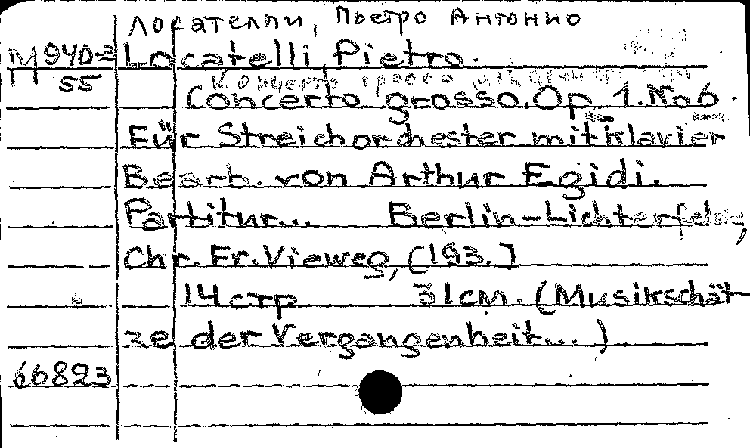 Локателли, Пьетро Антонио
М 940-3 Locatelli, Pietro.
55 Концерто гроссо
Concerto grosso. Op. 1. No 6.
Für Streichorchester mit Klavier
Bearb. von Arthur Egidi.
Partitur... Berlin-Lichterfelde,
Chr. Fr. Vieweg, [193.]
14 стр 31 см. (Musikschät-
ze der Vergangenheit...)
66823